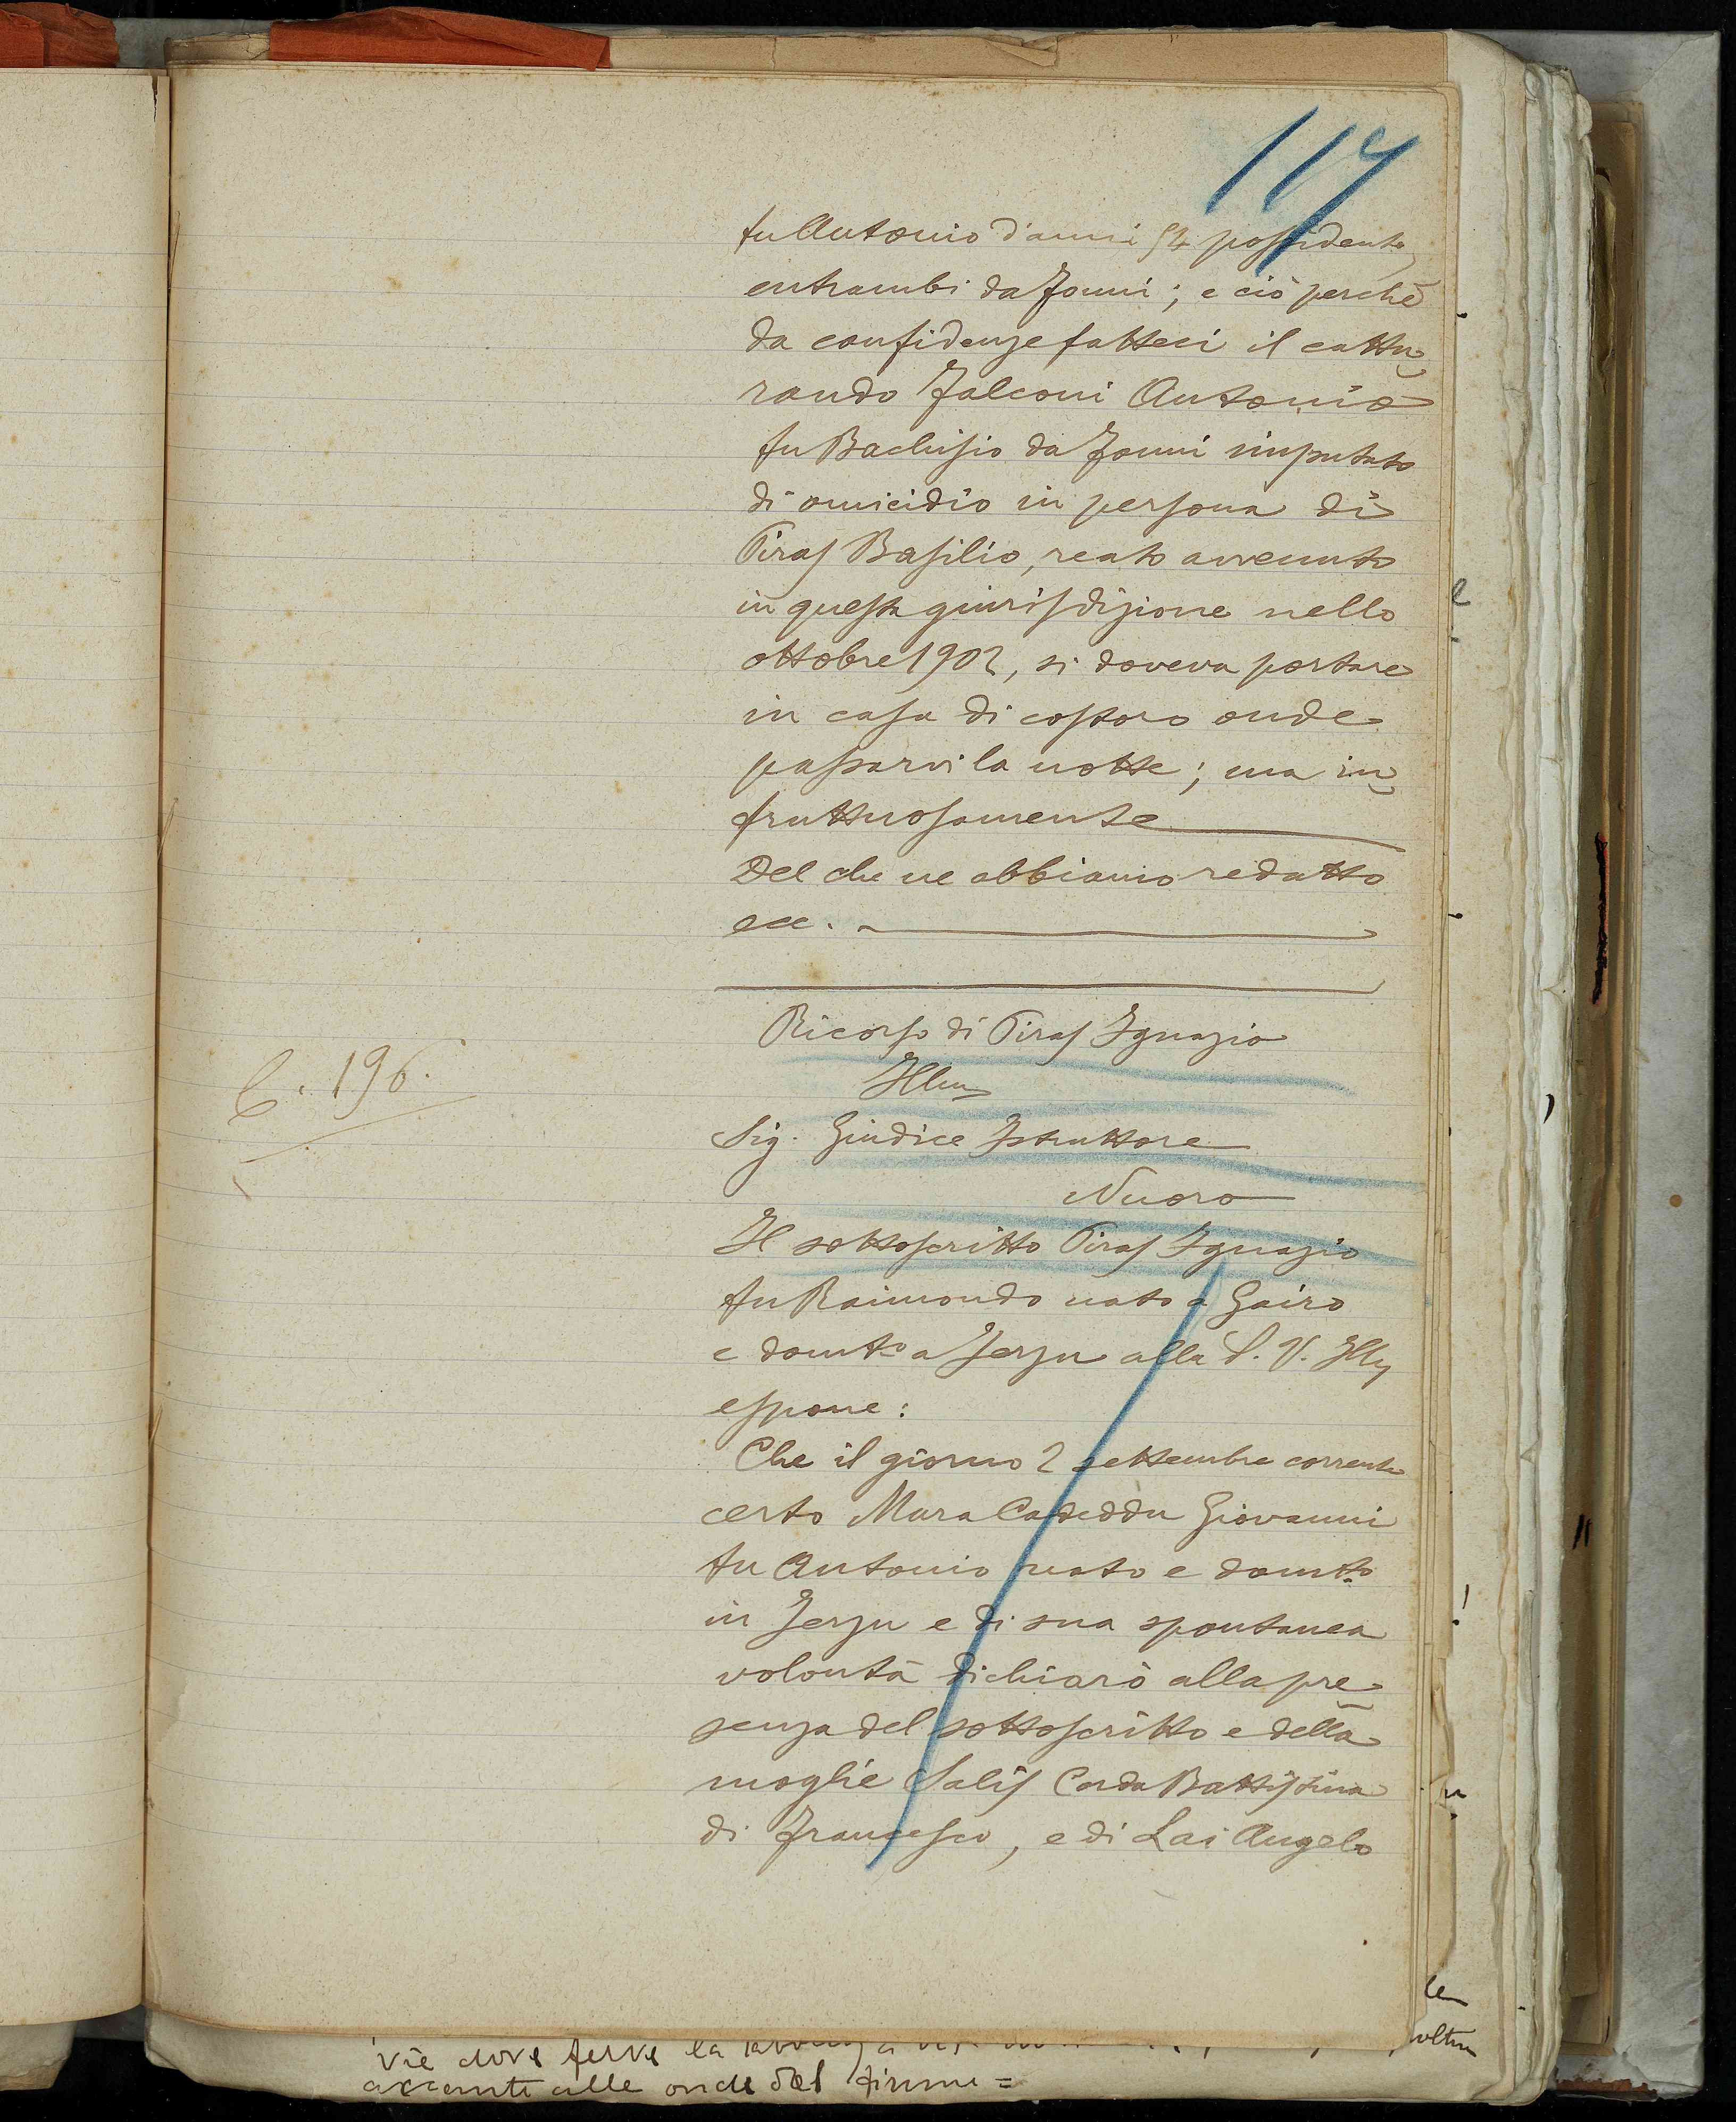 117
fu Antonio d'anni 54 possidente
entrambi da Fonni; e ciò perchè
da confidenze fatteci il cattu=
rando Falconi Antonio
fu Bachisio da Fonni imputato
di omicidio in persona di
Piras Basilio, reato avvenuto
in questa giurisdizione nello
ottobre 1902, si doveva portare
in casa di costoro onde
passarvi la notte; ma in=
fruttuosamente
Del che ne abbiamo redatto
ecc.
Ricorso di Piras Ignazio
C. 196.
Illm
Sig. Giudice Istruttore
Nuoro
Il sottoscritto Piras Ignazio
fu Raimondo nato a Gairo
e domto a Jerzu alla S. V. Ill
espone:
Che il giorno 2 settembre corrente
certo Mura Cadeddu Giovanni
fu Antonio nato e domto
in Jerzu e di sua spontanea
volontà dichiarò alla pre=
senza del sottoscritto e della
moglie Salis Corda Battistina
di Francesco, e di Lai Angelo
vie dove ferve la
alle onde del fiume =